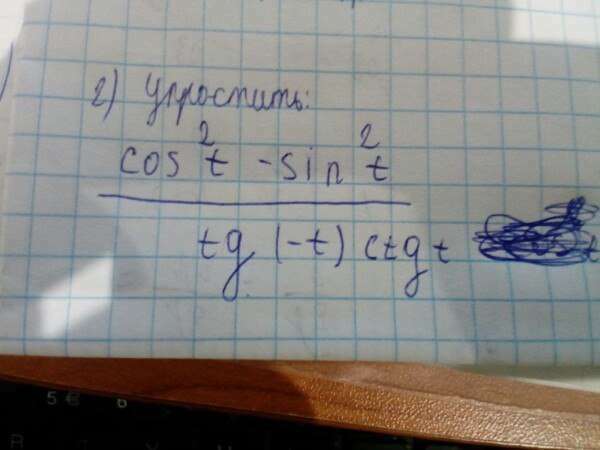 2) Упростить:
cos²t - sin²t
tg (-t) ctg t
t
5 € 6
R